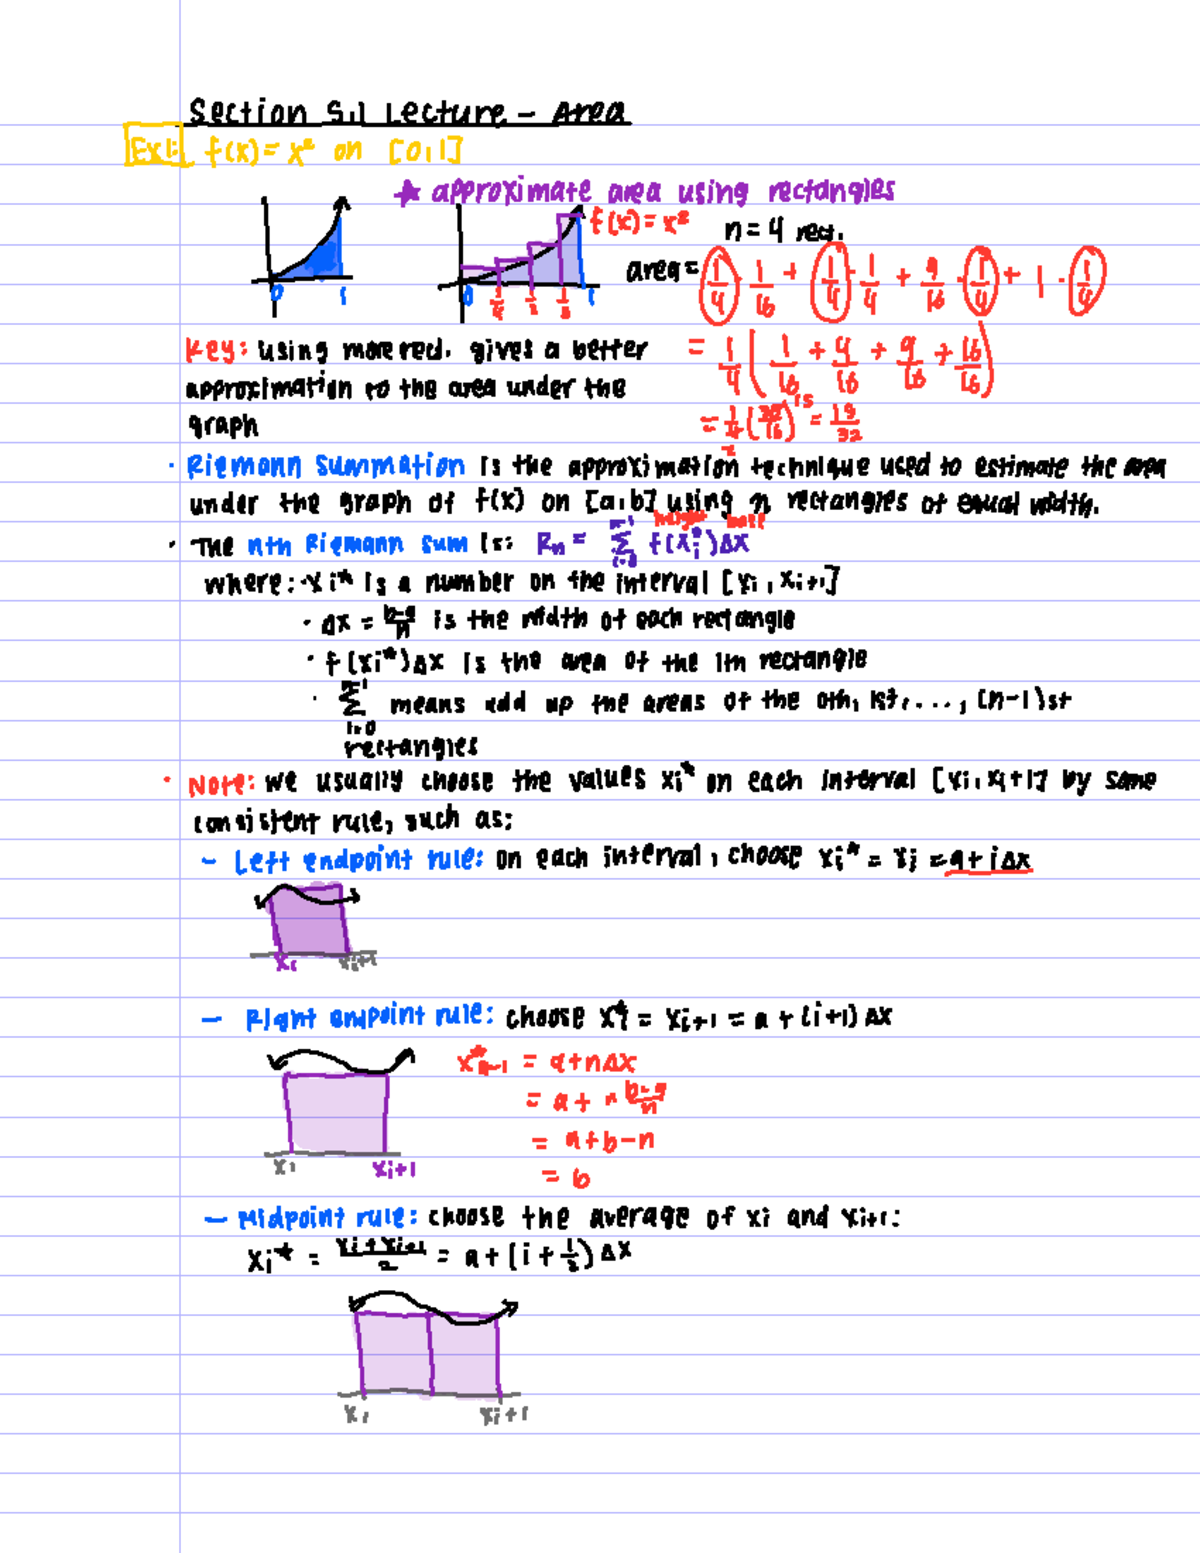 Section 5.1 Lecture - Area
Ex1: f(x) = x² on [0,1]
★ approximate area using rectangles
f(x) = x²
n = 4 rect.
0 1
0 1/4 1/2 1
area = 1/4 · 1/16 + 1/4 · 1/4 + 9/16 · 1/4 + 1 · 1/4
Key: using more rect. gives a better
= 1/4 ( 1/16 + 4/16 + 9/16 + 16/16 )
approximation to the area under the
graph
= 1/4 (30/16) 15 = 15/32
2
· Riemann Summation is the approximation technique used to estimate the area
under the graph of f(x) on [a,b] using n rectangles of equal width.
height base
· The nth Riemann Sum is: Rn = n-1 Σ i=0 f(xi*)Δx
where: · xi* is a number on the interval [xi, xi+1]
· Δx = b-a/n is the width of each rectangle
· f(xi*)Δx is the area of the ith rectangle
· n-1 Σ i=0 means add up the areas of the 0th, 1st, ..., (n-1)st
rectangles
· Note: we usually choose the values xi* on each interval [xi, xi+1] by some
consistent rule, such as:
- Left endpoint rule: on each interval, choose xi* = xi = a+iΔx
xi xi+1
- Right endpoint rule: choose xi* = xi+1 = a + (i+1) Δx
x*n-1 = a+nΔx
= a + n b-a/n
= a+b-n
= b
xi xi+1
- Midpoint rule: choose the average of xi and xi+1:
xi* = xi+xi+1/2 = a + (i + 1/2) Δx
xi xi+1